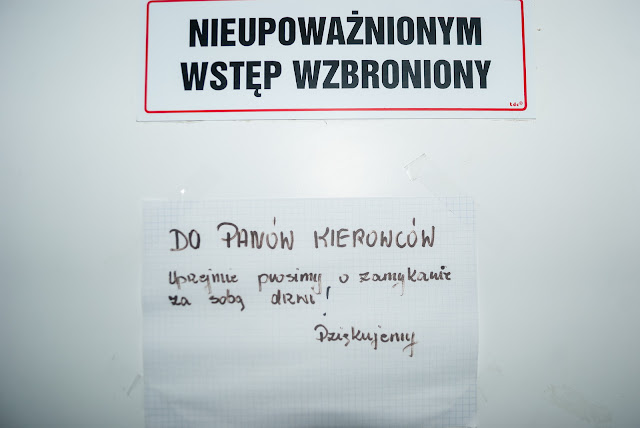 NIEUPOWAŻNIONYM
WSTĘP WZBRONIONY
tdc®
DO PANÓW KIEROWCÓW
Uprzejmie prosimy o zamykanie
za sobą drzwi!
Dziękujemy